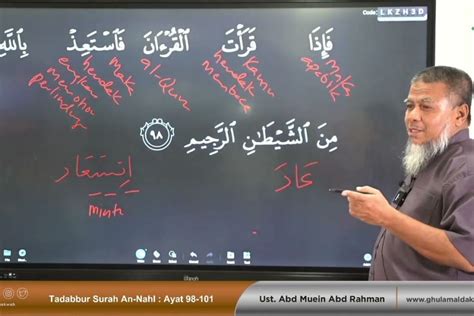 Code: LKZH3D
فَإِذَا قَرَأْتَ ٱلْقُرْءَانَ فَٱسْتَعِذْ بِٱللَّهِ
maka apabila
kamu hendak membaca
al-Quran
maka hendaklah engkau memohon perlindungan
مِنَ ٱلشَّيْطَٰنِ ٱلرَّجِيمِ ٩٨
عَاذَ
إِسْتَعَاذَ
minta
Tadabbur Surah An-Nahl : Ayat 98-101
Ust. Abd Muein Abd Rahman